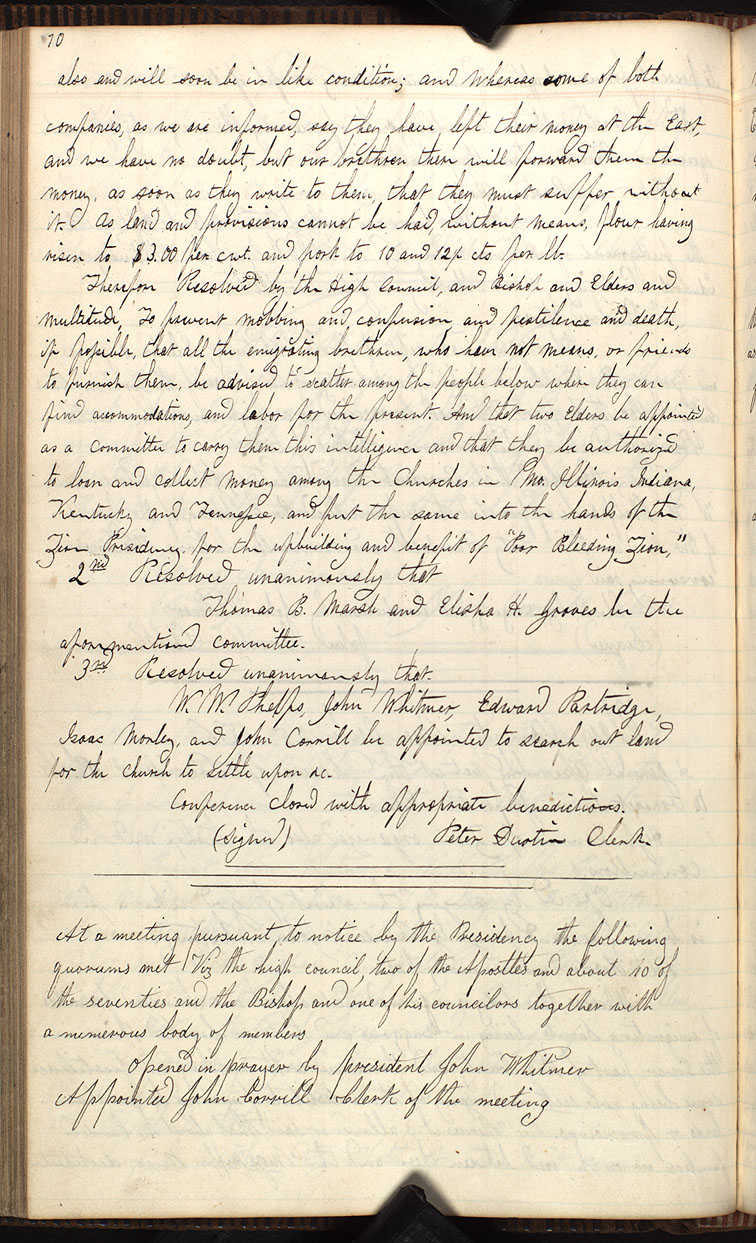 70
also and will soon be in like condition; and whereas some of both
companies, as we are informed, say they have, left their money at the East,
and we have no doubt, but our brethren there will forward them the
money, as soon as they write to them, that they must suffer without
it. As land and provisions cannot be had, without means, flour having
risen to $3.00 per cwt. and pork to 10 and 12½ cts per lb.
Therefore Resolved by the High Council, and Bishop and Elders and
multitude, To prevent mobbing and confusion and pestilence and death,
if possible, that all the emigrating brethren, who have not means, or friends
to furnish them, be advised to scatter among the people below where they can
find accommodations, and labor for the present. And that two Elders be appointed
as a committee to carry them this intelligence and that they be authorized
to loan and collect money among the Churches in Mo. Illinois Indiana,
Kentucky and Tennessee, and put the same into the hands of the
Zion Presidency. for the upbuilding and benefit of "Poor Bleeding Zion,"
2nd Resolved unanimously that
Thomas B. Marsh and Elisha H. Groves be the
aforementioned committee.
3rd Resolved unanimously that.
W. W. Phelps, John Whitmer, Edward Partridge,
Isaac Morley, and John Corrill be appointed to search out land
for the church to settle upon &c.
Conference closed with appropriate benedictions.
(signed) Peter Dustin Clerk.
At a meeting pursuant, to notice by the Presidency the following
quorums met Viz the high council, two of the Apostles and about 10 of
the seventies and the Bishop and one of his councilors together with
a numerous body of members
opened in prayer by president John Whitmer
Appointed John Corrill Clerk of the meeting